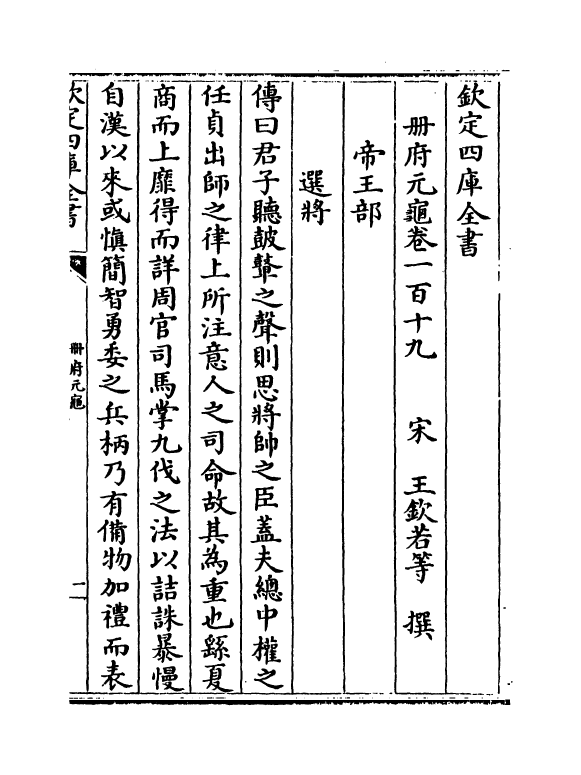 欽定四庫全書
冊府元龜卷一百十九　宋　王欽若等　撰
帝王部
選將
傳曰君子聽鼓鼙之聲則思將帥之臣蓋夫總中權之
任貞出師之律上所注意人之司命故其為重也繇夏
商而上靡得而詳周官司馬掌九伐之法以詰誅暴慢
自漢以來或慎簡智勇委之兵柄乃有備物加禮而表
欽定四庫全書
冊府元龜